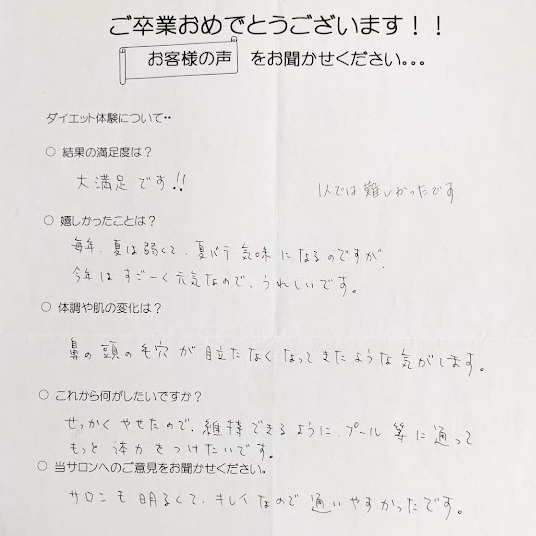 ご卒業おめでとうございます！！
お客様の声 をお聞かせください。。。
ダイエット体験について・・
○ 結果の満足度は？
大満足です!!
1人では難しかったです
○ 嬉しかったことは？
毎年、夏は弱くて、夏バテ気味になるのですが、
今年はすごーく元気なので、うれしいです。
○ 体調や肌の変化は？
鼻の頭の毛穴が目立たなくなってきたような気がします。
○ これから何がしたいですか？
せっかくやせたので、維持できるように、プール等に通って
もっと体力をつけたいです。
○ 当サロンへのご意見をお聞かせください。
サロンも明るくて、キレイなので通いやすかったです。